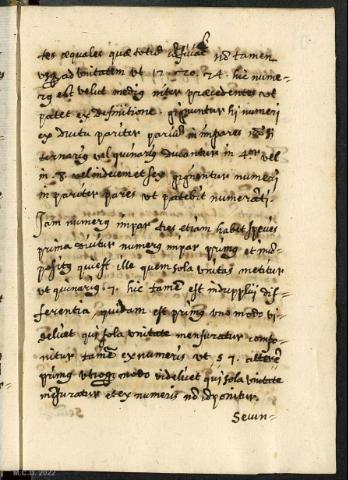 tes æquales quæ totid dividat nō tamen
usq. ad unitatem ut 12. 20. 24. hic nume-
rus est velut medius inter præcedentes ut
patet ex definitione. gignuntur hi numeri
ex ductu pariter parium in impares nā si
ternarius vel quinarius ducantur in 4or vel
in 8. vel in decem et sex gignentur numeri
in pariter pares ut patebit numeranti.
Jam numerus impar tres etiam habet species
prima dicitur numerus impar primus et incō-
positus qui est ille quem sola unitas metitur
ut quinarius. 7. hic tamē est in duplici dif-
ferentia quidam est primus uno modo vi-
delicet qui sola unitate mensuratur compo-
nitur tamē ex numeris ut 5 7. alter
primus utroq. modo videlicet qui sola unitate
mēsuratur et ex numeris nō cōponitur.
Secun-
M.C.D. 2022